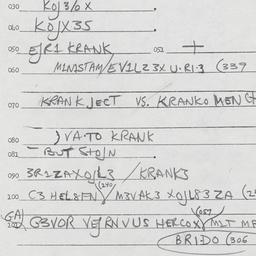 030 KOJ3/6 X .
040 KOJX35 .
050 EJR1 KRANK 051 +
060 MINISTAM/EV1LZ3X U·R1·3 (339
070 KRANKJECT VS. KRANKO MEN
080 ) VA·TO KRANK
081 - BUT STOJN
090 3R1ZAXOJL3 / KRANK3
100 C3 HEL8FN / M3VAK3 XOJL83ZA
G3VOR VEJRNVUS HERCOX MLT
BRIDO (306